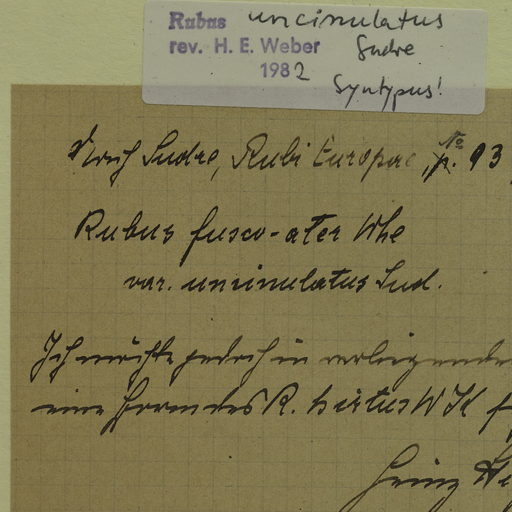 Rubus uncinulatus
rev. H. E. Weber Sudre
1982 Syntypus!
Nach Sudre, Rubi Europae, No. 93
Rubus fusco-ater Whe
var. uncinulatus Sud.
Ich möchte jedoch in vorliegender
eine Form des R. hirtus W K f
Heinz